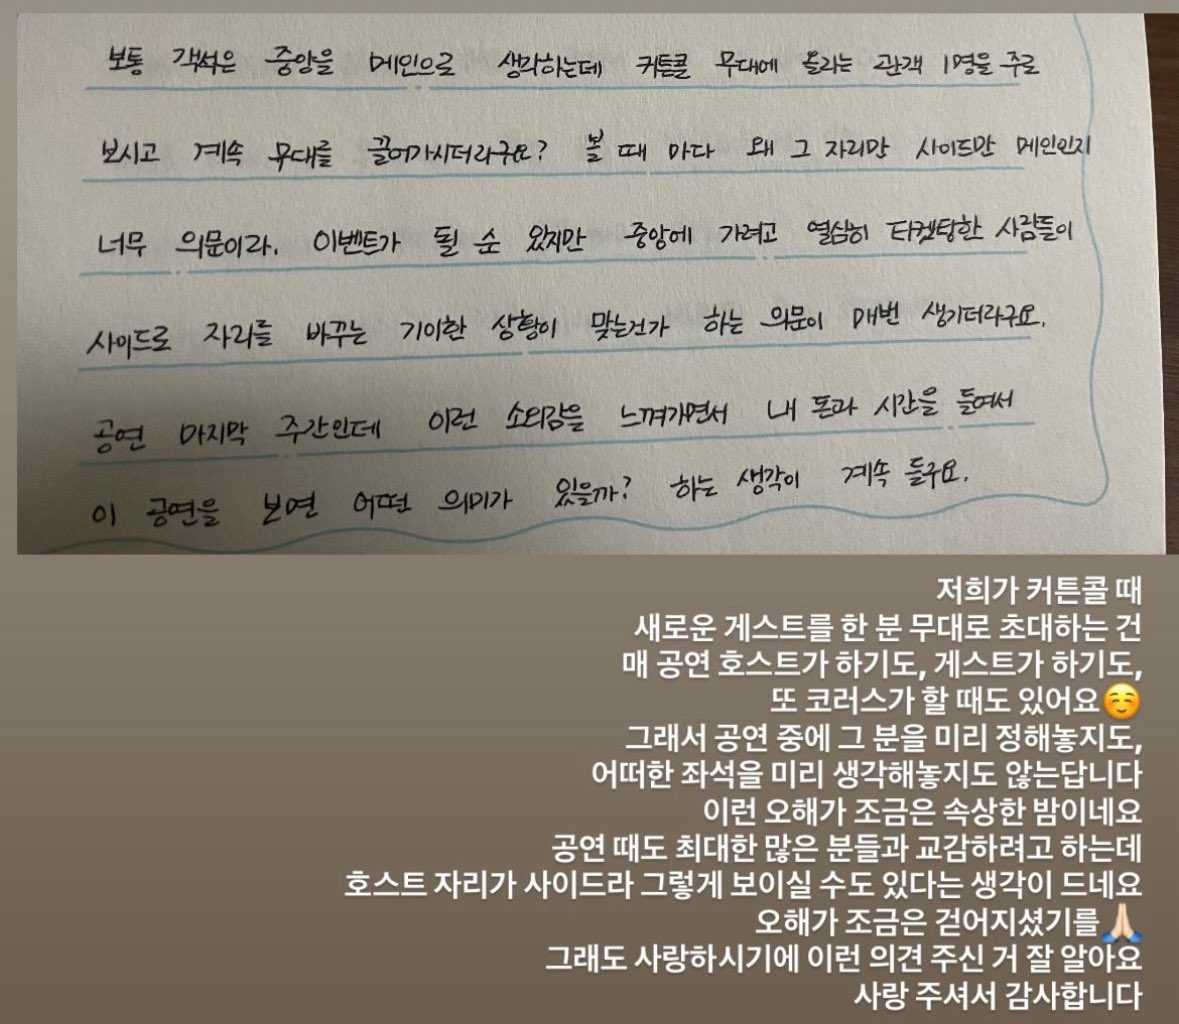 보통 객석은 중앙을 메인으로 생각하는데 커튼콜 무대에 올라는 관객 1명을 주로
보시고 계속 무대를 끌어가시더라구요? 볼 때 마다 왜 그 자리만 사이드만 메인인지
너무 의문이라. 이벤트가 될 순 있지만 중앙에 가려고 열심히 티켓팅한 사람들이
사이드로 자리를 바꾸는 기이한 상황이 맞는건가 하는 의문이 매번 생기더라구요.
공연 마지막 주간인데 이런 소외감을 느껴가면서 내 돈과 시간을 들여서
이 공연을 보면 어떤 의미가 있을까? 하는 생각이 계속 들구요.
저희가 커튼콜 때
새로운 게스트를 한 분 무대로 초대하는 건
매 공연 호스트가 하기도, 게스트가 하기도,
또 코러스가 할 때도 있어요☺️
그래서 공연 중에 그 분을 미리 정해놓지도,
어떠한 좌석을 미리 생각해놓지도 않는답니다
이런 오해가 조금은 속상한 밤이네요
공연 때도 최대한 많은 분들과 교감하려고 하는데
호스트 자리가 사이드라 그렇게 보이실 수도 있다는 생각이 드네요
오해가 조금은 걷어지셨기를🙏🏻
그래도 사랑하시기에 이런 의견 주신 거 잘 알아요
사랑 주셔서 감사합니다